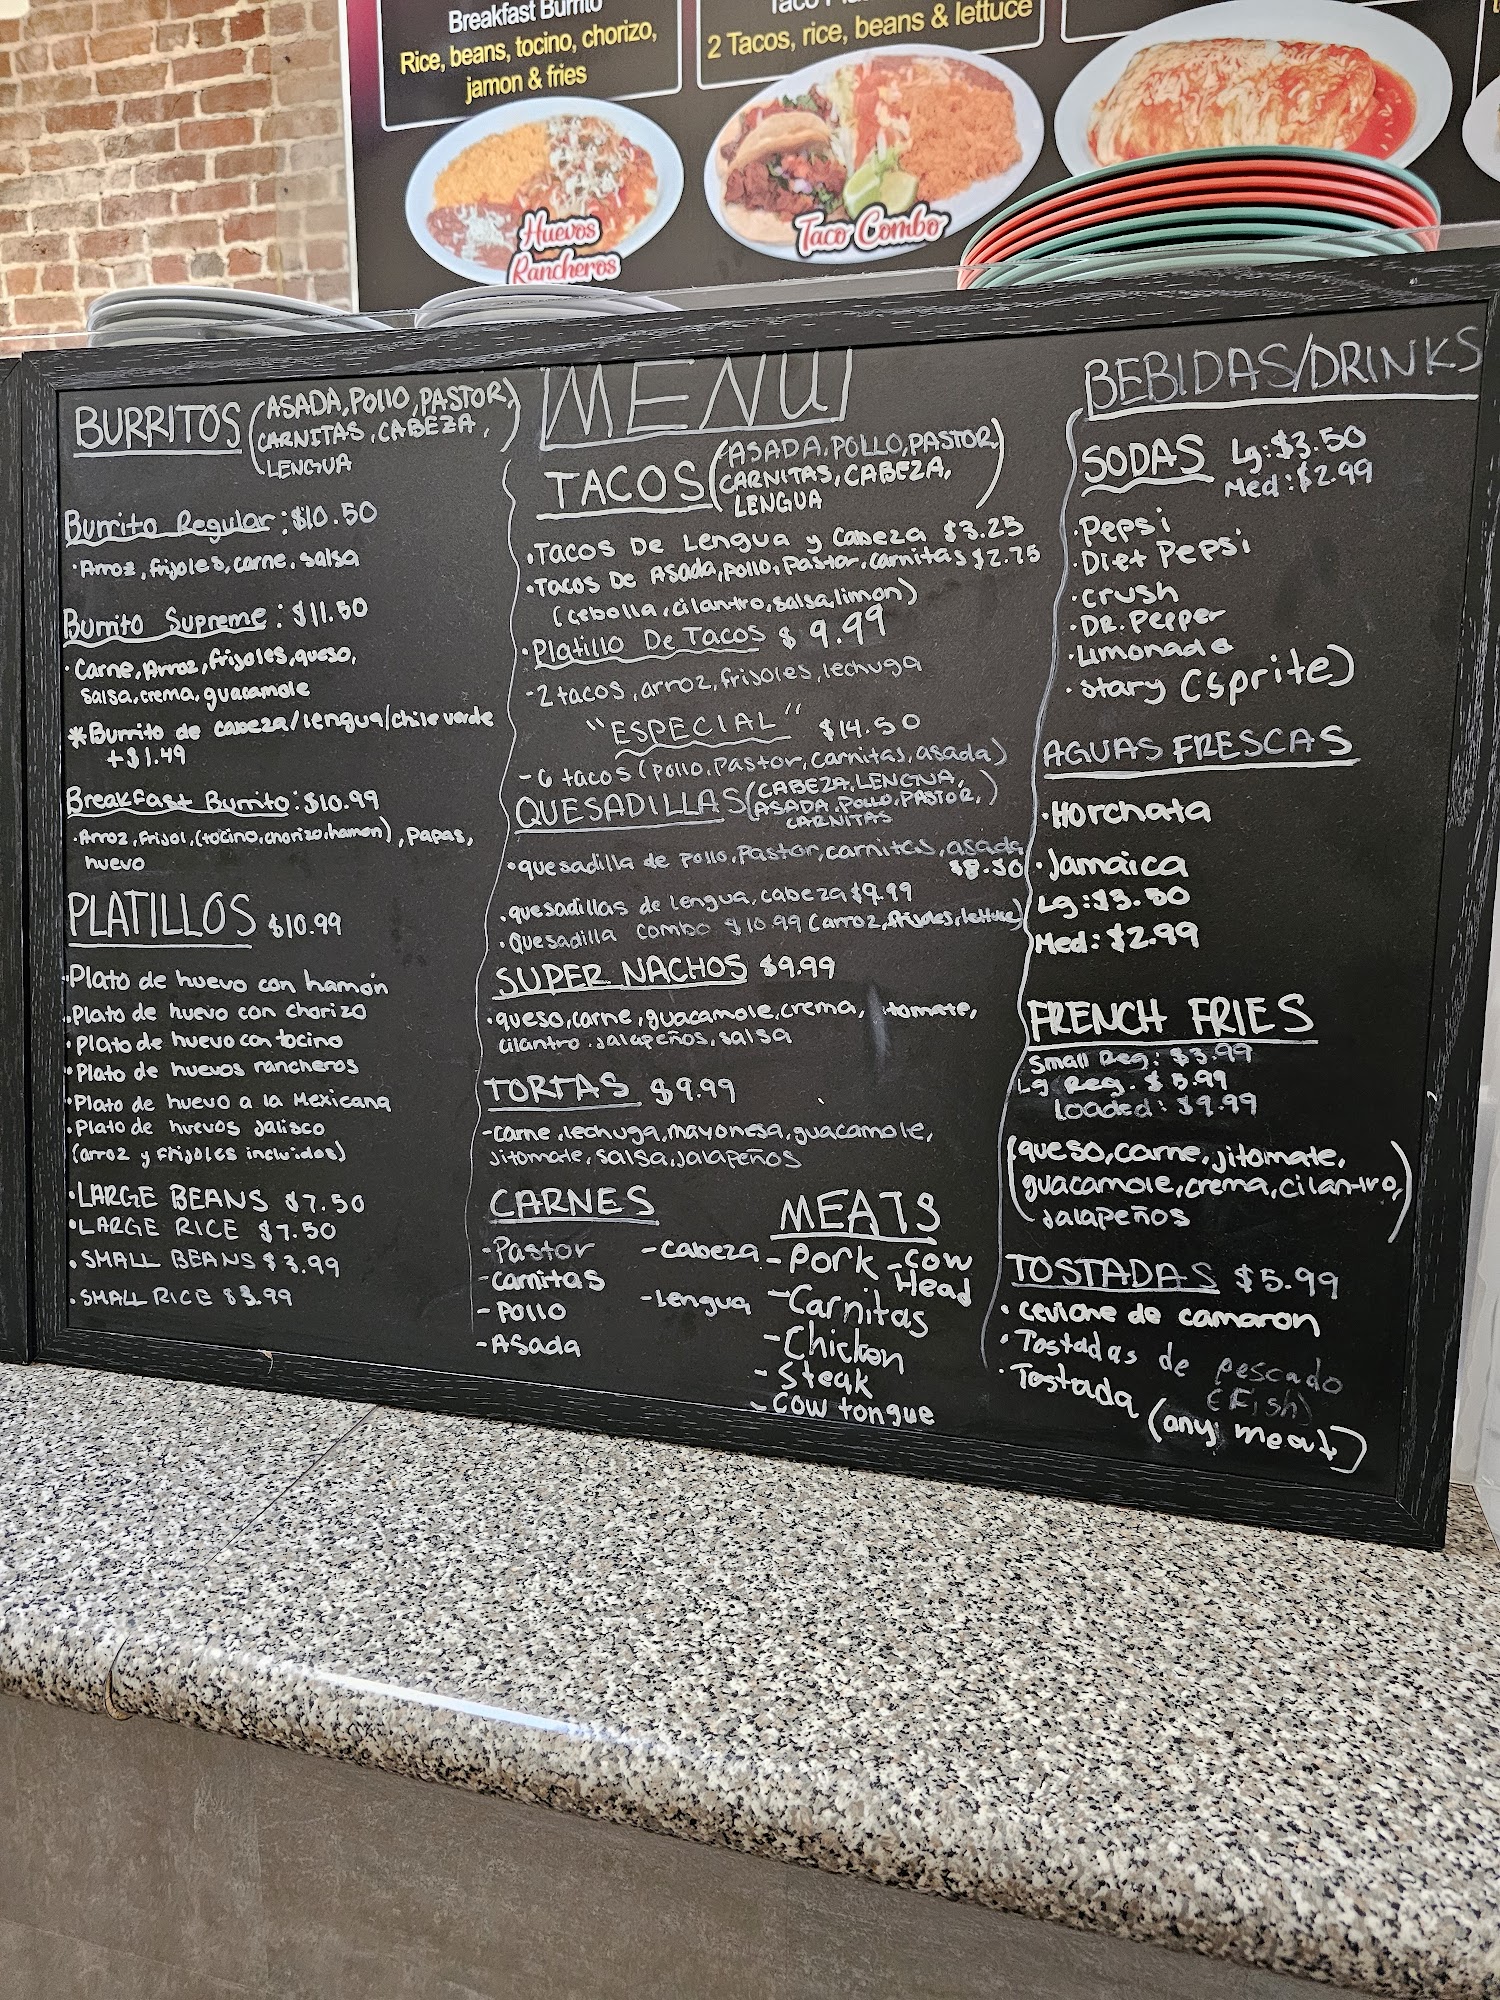 Breakfast Burrito
Rice, beans, tocino, chorizo,
jamon & fries
2 Tacos, rice, beans & lettuce
Huevos
Rancheros
Taco Combo
BURRITOS (ASADA, POllO, PASTOR,
CARNITAS, CABEZA,
LENGUA)
Burrito Regular: $10.50
·Arroz, frijoles, carne, salsa
Burrito Supreme: $11.50
·Carne, Arroz, frijoles, queso,
salsa, crema, guacamole
*Burrito de cabeza/lengua/chile verde
+$1.49
Breakfast Burrito: $10.99
·Arroz, Frijol, (tocino, chorizo, hamon), Papas,
huevo
PLATILLOS $10.99
·Plato de huevo con hamón
·Plato de huevo con chorizo
·Plato de huevo con tocino
·Plato de huevos rancheros
·Plato de huevo a la Mexicana
·Plato de huevos Jalisco
(arroz y frijoles incluidos)
·LARGE BEANS $7.50
·LARGE RICE $7.50
·SMALL BEANS $3.99
·SMALL RICE $3.99
MENU
TACOS (ASADA, POLLO, PASTOR,
CARNITAS, CABEZA,
LENGUA)
·Tacos De Lengua y Cabeza $3.25
·Tacos De Asada, pollo, Pastor, Carnitas $2.75
(cebolla, cilantro, salsa, limon)
·Platillo De Tacos $9.99
-2 tacos, arroz, frijoles, lechuga
"ESPECIAL" $14.50
-6 tacos (pollo, Pastor, Carnitas, asada)
QUESADILLAS (CABEZA, LENGUA,
ASADA, POLLO, PASTOR,
CARNITAS)
·quesadilla de pollo, Pastor, carnitas, asada
$8.50
·quesadillas de lengua, cabeza $9.99
·Quesadilla combo $10.99 (arroz, frijoles, lettuce)
SUPER NACHOS $9.99
·queso, carne, guacamole, crema, jitomate,
cilantro. jalapeños, salsa
TORTAS $9.99
-carne, lechuga, mayonesa, guacamole,
jitomate, salsa, jalapeños
CARNES
-Pastor
-Carnitas
-Pollo
-Asada
-Cabeza
-lengua
MEATS
-Pork
-Carnitas
-Chicken
-Steak
-Cow tongue
-Cow
Head
BEBIDAS/DRINKS
SODAS Lg: $3.50
Med: $2.99
·Pepsi
·Diet Pepsi
·crush
·DR. Pepper
·Limonada
·Stary (sprite)
AGUAS FRESCAS
·Horchata
·Jamaica
Lg: $3.50
Med: $2.99
FRENCH FRIES
Small Reg: $3.99
Lg Reg. $5.99
loaded: $9.99
(queso, carne, jitomate,
guacamole, crema, cilantro,
Jalapeños)
TOSTADAS $5.99
·Ceviche de camaron
·Tostadas de pescado
(Fish)
·Tostada (any meat)